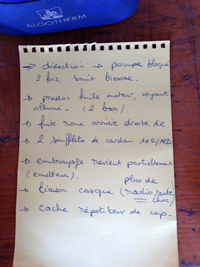 ALGOTHERM
→ direction → pompe bloqué
2 fois, bruit bizarre.
→ pression huile moteur, voyant
allumé. (2 bar)
→ fuite roue arrière droite
→ 2 soufflets de cardan ARG/ARD
→ embrayage revient partiellement
(émetteur).
plus de
→ liaison casque (radio
choc)
→ cache répétiteur de cap.